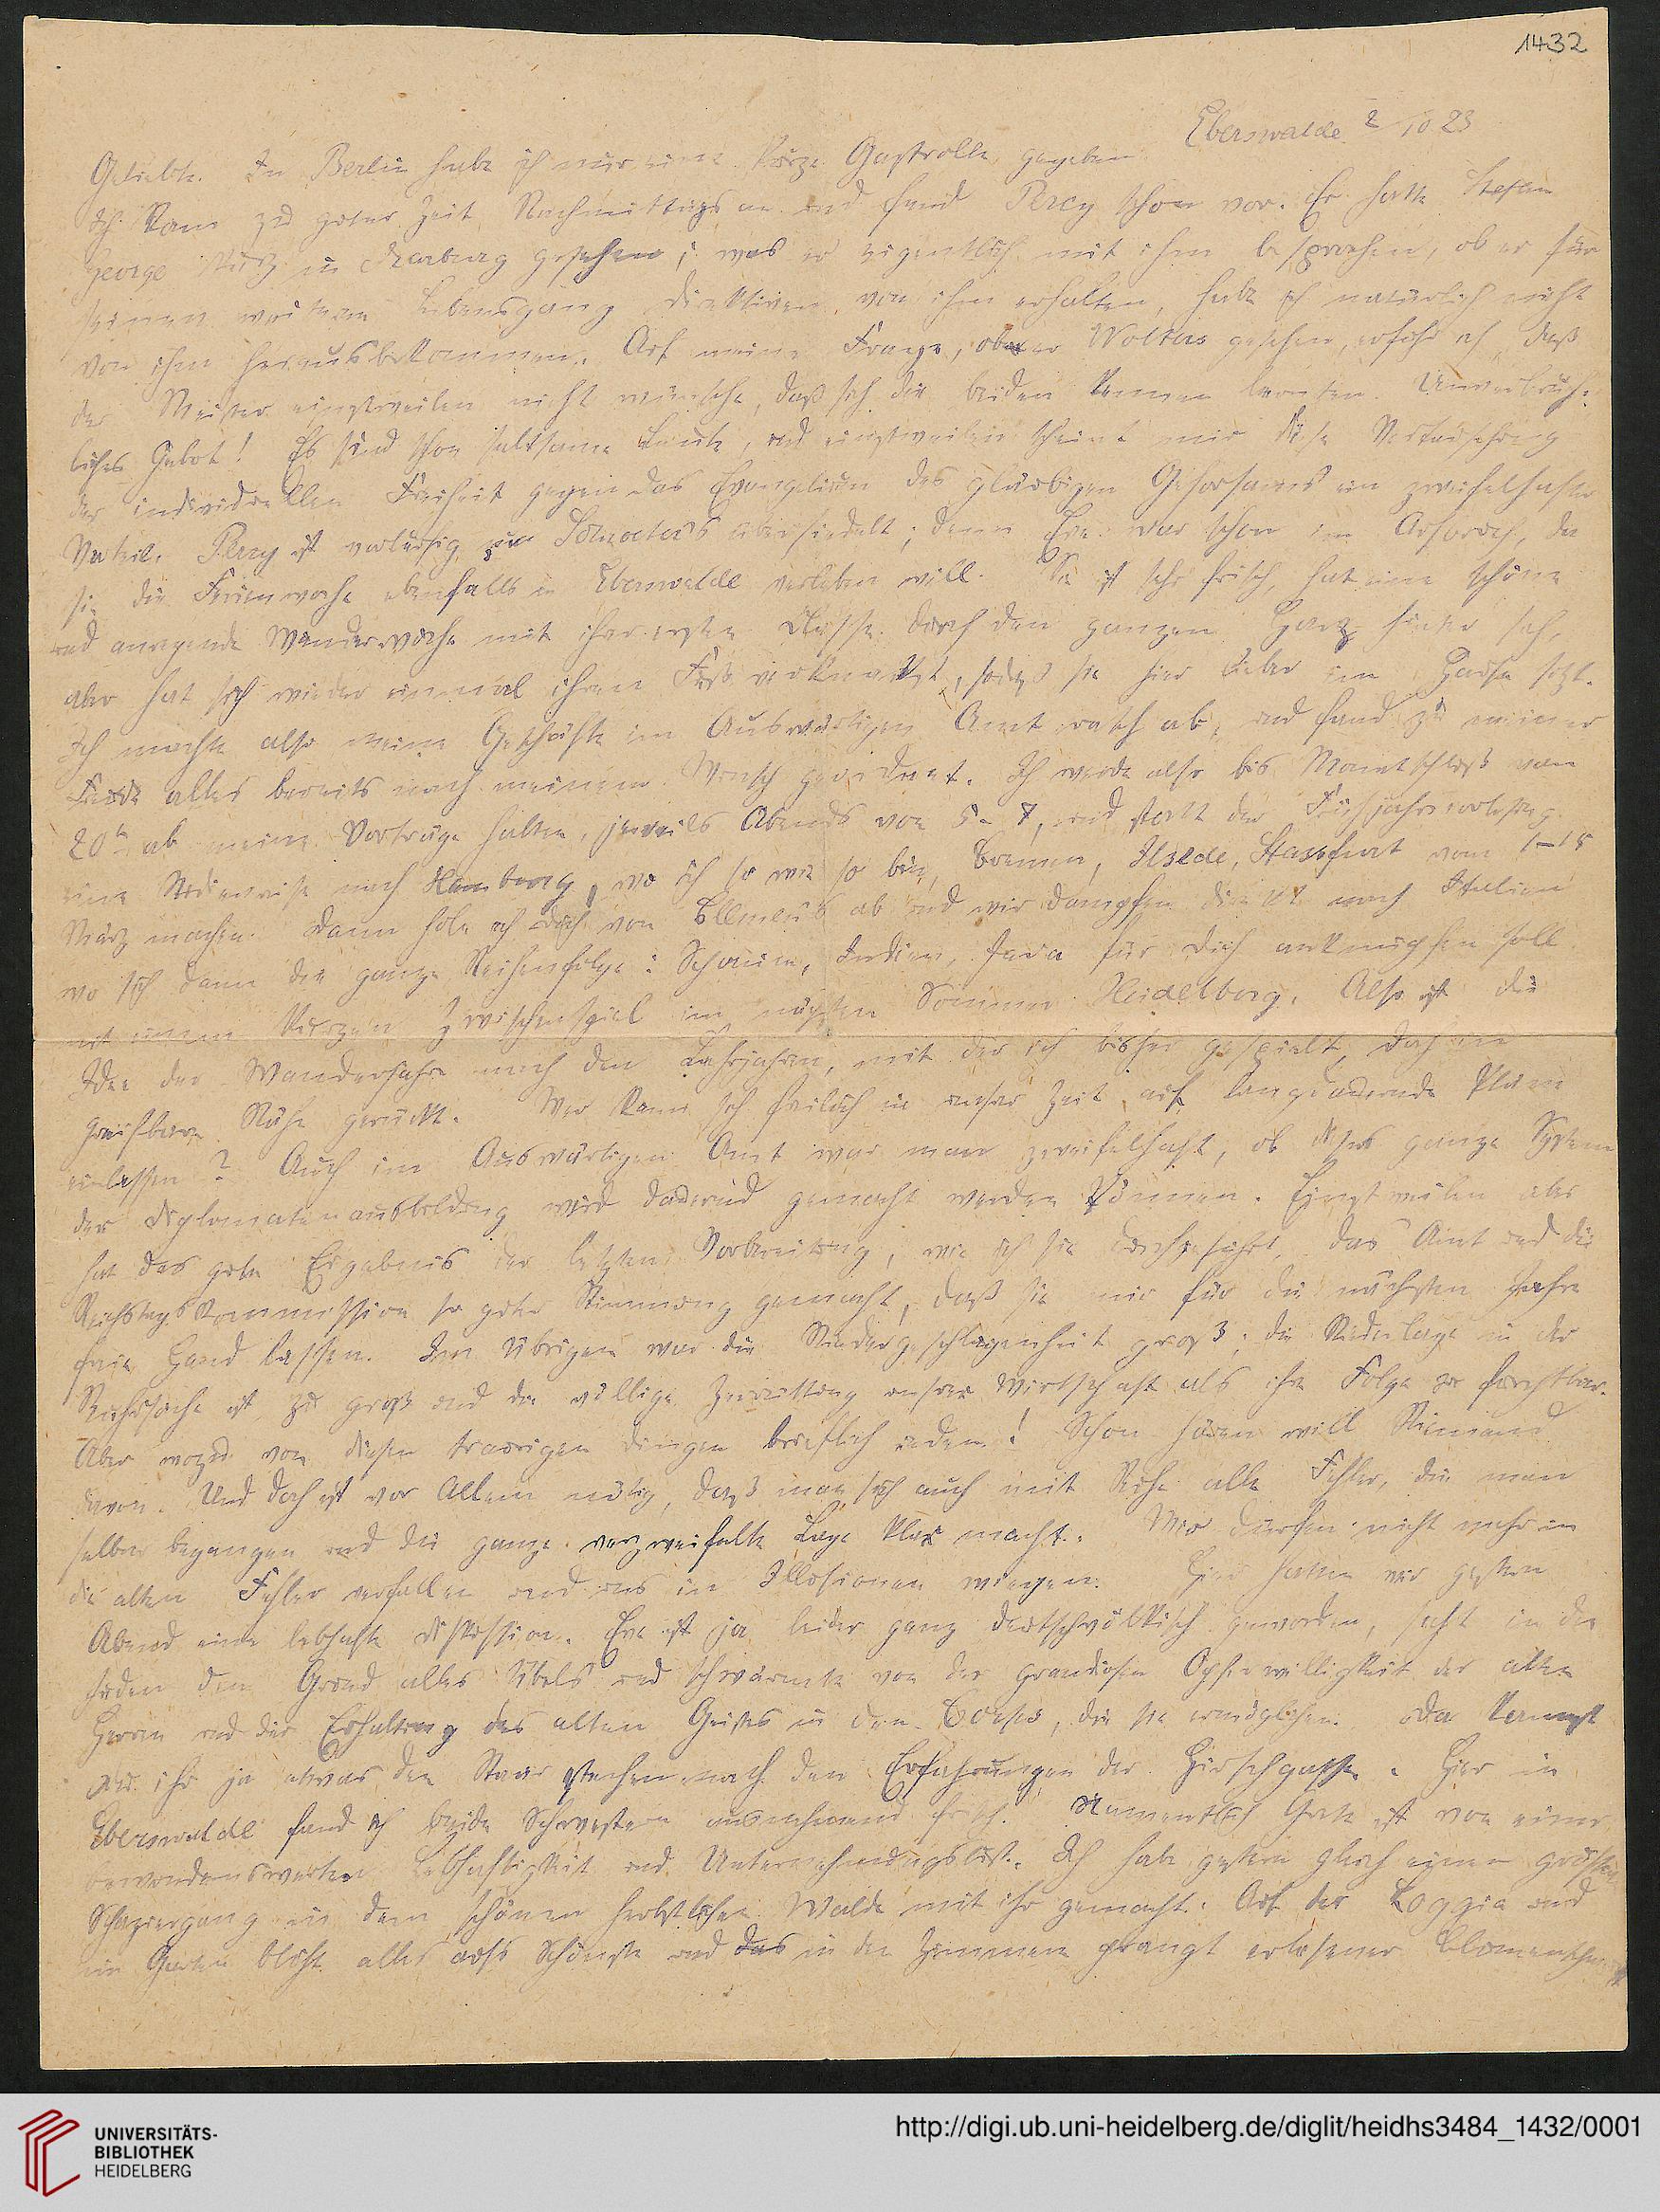 1432
Eberswalde 2 10 23
Geliebte. In Berlin habe ich nur eine kurze Gastrolle gegeben
Ich kam zu guter Zeit Nachmittags an und fand Percy schon vor. Er hatte Stefan
George kurz in Marburg gesehen; was er eigentlich mit ihm besprochen, ob er für
seinen weiteren Lebensgang Direktiven von ihm erhalten, habe ich natürlich nicht
von ihm herausbekommen. Auf meine Frage, ob er Wolters gesehen, erfuhr ich, daß
der Meister einstweilen nicht wünsche, daß sich die beiden kennen lernten. Unverbrüch-
liches Gebot! Es sind schon seltsame Leute, und einstweilen scheint mir diese Vertauschung
der individuellen Freiheit gegen das Evangelium des gläubigen Gehorsams ein zweifelhafter
Vorteil. Percy ist vorläufig zu übersiedelt; denn Eva war schon im Aufbruch, da
sie die Ferienwoche ebenfalls in Eberswalde verleben will. Sie ist sehr frisch, hat eine schöne
und anregende Wanderwoche mit ihrer ersten Klasse durch den ganzen Harz hinter sich,
aber hat sich wieder einmal ihren Fuß verknackst, sodaß sie hier lieber im Hause sitzt.
Ich machte also meine Geschäfte im Auswärtigen Amt rasch ab, und fand zu meiner
Freude alles bereits nach meinem Wunsch geordnet. Ich werde also bis Monatschluß vom
20ten ab meine Vorträge halten, jeweils Abends von 5-7, und statt der Frühjahrsvorlesung
eine Studienreise nach Hamburg, wo ich so wie so bin, Bremen, Ilsede, Stassfurt vom 1-15
März machen. Dann hole ich Dich von ab und wir dampfen direkt nach Italien
wo sich dann die ganze Reihenfolge: Spanien, Indien, Java für Dich anknüpfen soll
mit einem kurzen Zwischenspiel im nächsten Sommer Heidelberg. Also ist die
Idee der Wanderjahre nach den Lehrjahren, mit der ich bisher gespielt, doch in
greifbare Nähe gerückt. Wer kann sich freilich in unserer Zeit auf langdauernde Pläne
einlassen? Auch im Auswärtigen Amt war man zweifelhaft, ob dieses ganze System
der Diplomatenausbildung wird dauernd gemacht werden können. Einstweilen aber
hat das gute Ergebnis der letzten Vorbereitung, wie ich sie durchgeführt, das Amt und die
Reichstagskommission so guter Stimmung gemacht, daß sie mir für die nächsten Jahre
freie Hand lassen. Im Übrigen war die Niedergeschlagenheit groß; die Niederlage in der
Ruhrsache ist zu groß und die völlige Zerrüttung unserer Wirtschaft als ihre Folge zu furchtbar.
Aber wozu von diesen traurigen Dingen brieflich reden! Schon hören will Niemand
davon. Und doch ist vor Allem nötig, daß man sich auch mit Ruhe alle Fehler, die man
selber begangen und die ganze verzweifelte Lage klar macht. Wir dürfen nicht mehr in
die alten Fehler verfallen und uns in Illusionen wiegen. Hier hatten wir gestern
Abend eine lebhafte Diskussion. Eva ist ja leider ganz deutschvölkisch geworden, sieht in den
Juden den Grund alles Übels und schwärmte von der grandiosen Opferwilligkeit der alten
Herren und der Erhaltung des alten Geistes in den Corps, die sie ermöglichen. Da könnt
ihr ja etwas den Staar stechen nach den Erfahrungen der Hirschgasse. Hier in
Eberswalde fand ich beide Schwestern ausnehmend frisch. Namentlich Grete ist von einer
bewundernswerten Lebhaftigkeit und Unternehmungslust. Ich habe gestern gleich einen größeren
Spaziergang in dem schönen herbstlichen Walde mit ihr gemacht. Auf der Loggia und
im Garten blüht alles aufs Schönste und in den Zimmern prangt erlesener Blumenschmuck
UNIVERSITÄTS-
BIBLIOTHEK
HEIDELBERG
http://digi.ub.uni-heidelberg.de/diglit/heidhs3484_1432/0001